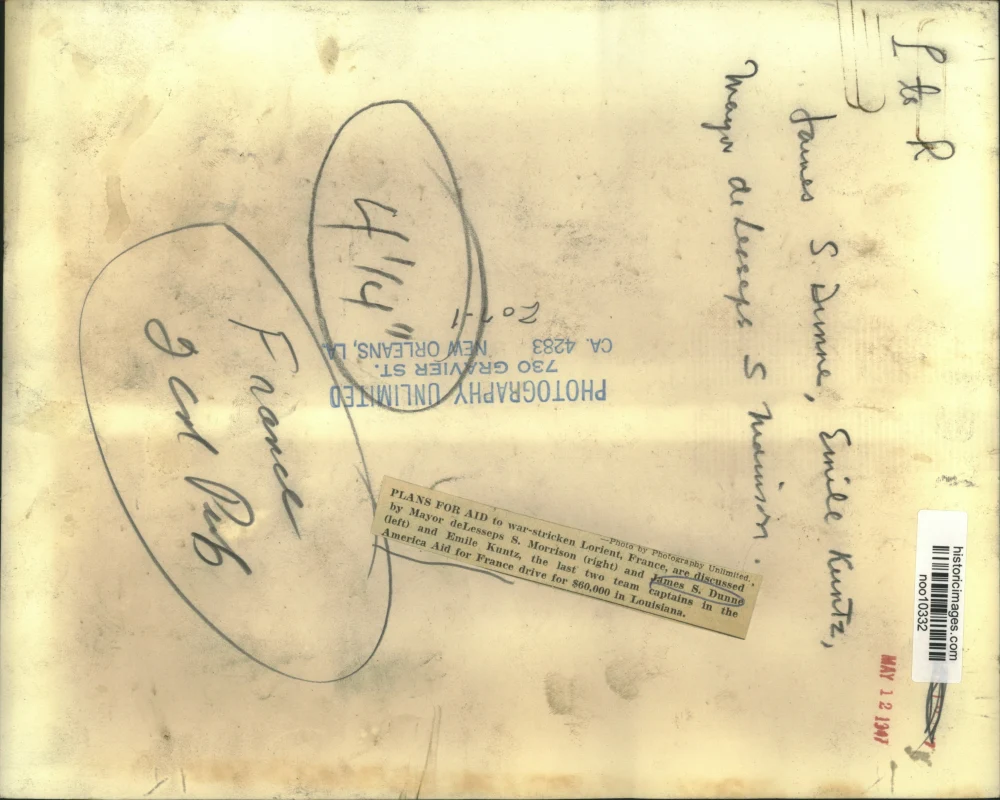 L to R
James S. Dunne, Emile Kuntz,
Mayor deLesseps S Morrison.
4 1/4"
France
2 col
PHOTOGRAPHY UNLIMITED
730 GRAVIER ST.
CA. 4283 NEW ORLEANS, LA.
—Photo by Photography Unlimited.
PLANS FOR AID to war-stricken Lorient, France, are discussed
by Mayor deLesseps S. Morrison (right) and James S. Dunne
(left) and Emile Kuntz, the last two team captains in the
America Aid for France drive for $60,000 in Louisiana.
historicimages.com
noo10332
MAY 12 1947